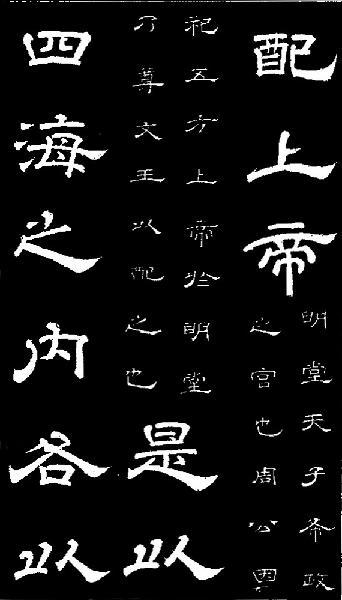 配上帝
明堂天子布政
之宮也周公因
祀五方上帝於明堂
乃尊文王以配之也
是以
四海之內各以